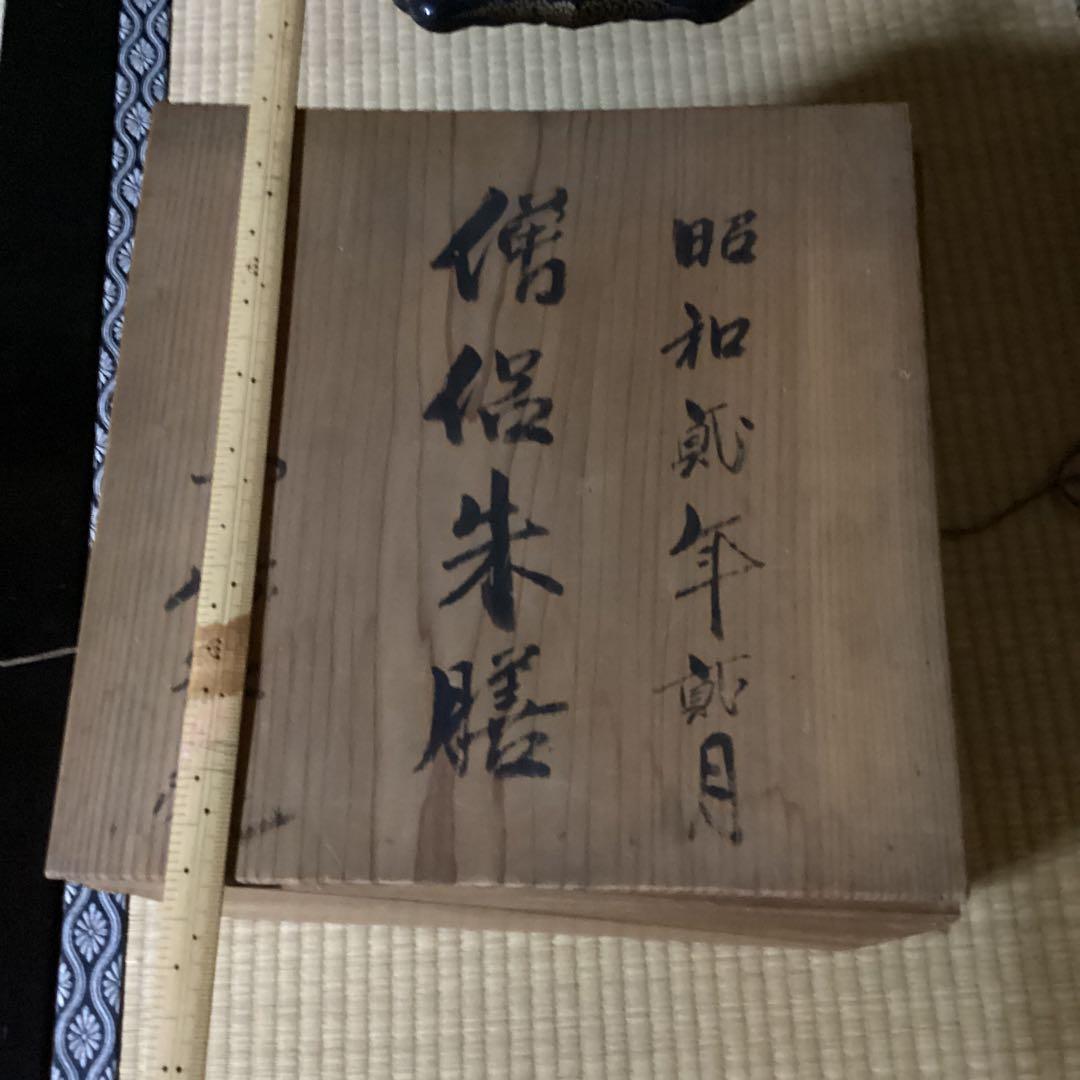 昭和貳年貳月
僧侶朱膳